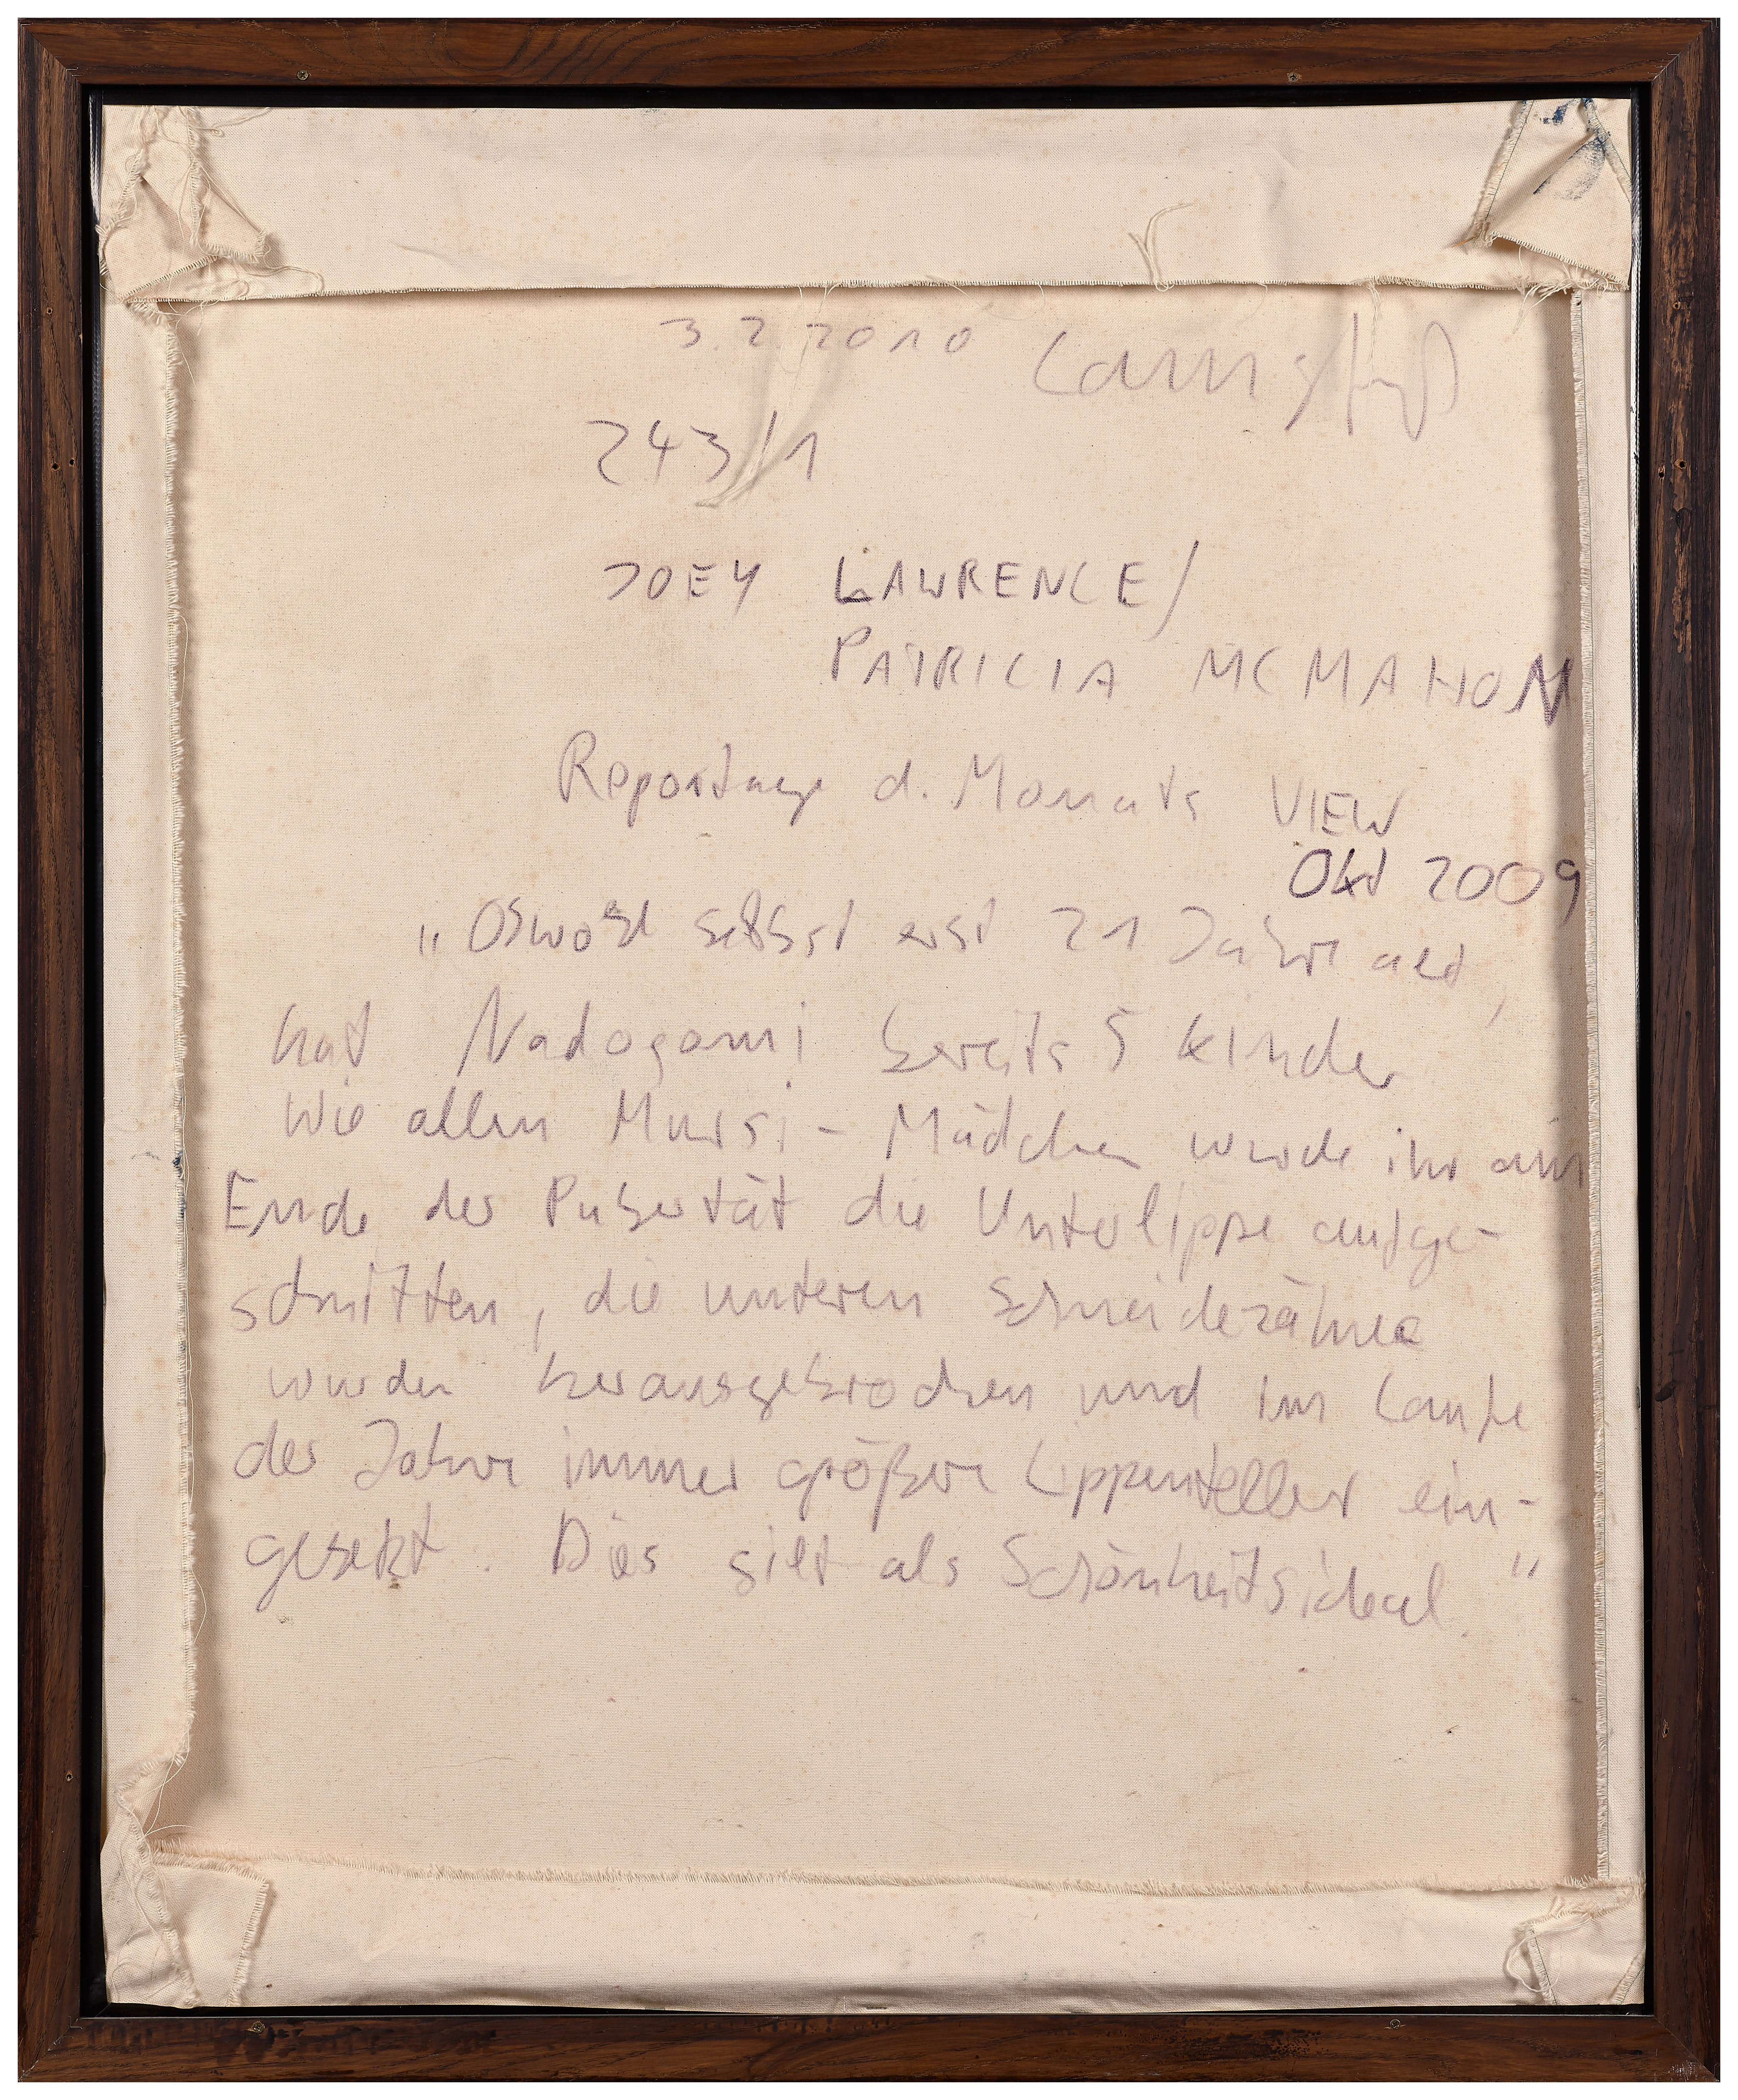 3.2.2010
243/1
JOEY LAWRENCE/
PATRICIA MCMAHON
Reportage d. Monats VIEW
Okt 2009
"Obwohl selbst erst 21 Jahre alt,
hat Nadogomi bereits 5 Kinder
Wie allen Mursi-Mädchen wurde ihr am
Ende der Pubertät die Unterlippe aufge-
schnitten, die unteren Schneidezähne
wurden herausgebrochen und im Laufe
der Jahre immer größere Lippenteller ein-
gesetzt. Dies gilt als Schönheitsideal."